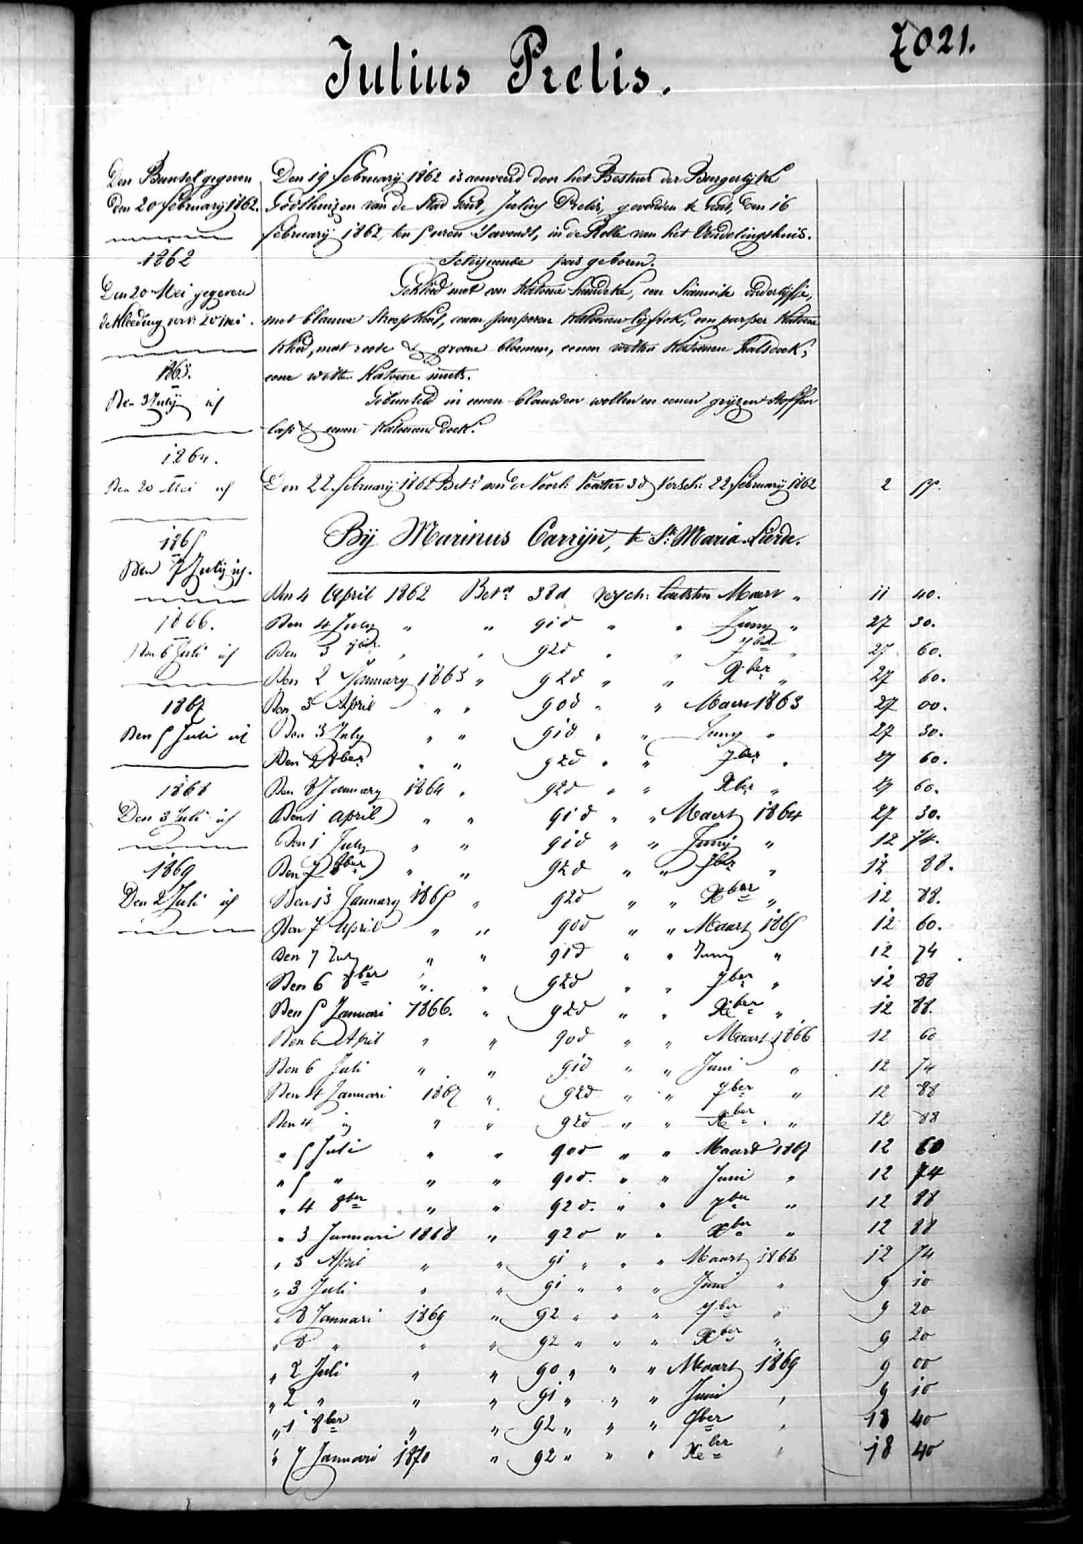 7021.
Julius Prelis.
Den Bunsel gegeven
den 20 februarij 1862.
1862
Den 20 Mei gegeven
de kleeding
1863.
Den 3 Julij id
1864.
Den 20 Mei id
1865
Den 7 Julij id.
1866.
Den 6 Juli id
1867
Den 5 Juli id
1868
Den 3 Juli id
1869
Den 2 Juli id
Den 19 februarij 1862 is aanveerd door het Bestier der Burgerlijke
Godshuizen van de Stad Gent, Julius Prelis, gevonden te Gent, den 16
februarij 1862, ten uren s'avonds, in de Rolle van het Vondelingshuis.
Schijnende pas geboren.
Gekleed met een Katoene hemdeke, een
met blauwe een purper Katoene
kleed, met roode & groene bloemen, eenen witten Katoenen halsdoek,
eene witte Katoene muts.
Gebunseld in eenen blauwen wollen en eenen grijzen Stoffen
lap & eenen Katoenen doek.
Den 22 februarij 1862 Bet. aan de 3 d Versch: 22 februarij 1862 2
By Marinus Carrijn, te St. Maria-Lierde.
Den 4 April 1862 Bet. 38d versch: Maart " 11 40.
Den 4 July " " 91d " " Juny " 27 30.
Den 3 " " 92d " " 7ber " 27 60.
Den 2 January 1863 " 92d " " Xber " 27 60.
Den 3 April " " 90d " " Maart 1863 27 00.
Den 3 July " " 91d " " Juny " 27 30.
Den 2 8ber " " 92d " " 7ber " 27 60.
Den 8 January 1864 " 92d " " Xber " 27 60.
Den 1 april " " 91d " " Maart 1864 27 30.
Den 1 July " " 91d " " Junij " 12 74.
Den 7 8ber " " 92d " " 7ber " 12 88.
Den 13 January 1865 " 92d " " Xber " 12 88.
Den 7 April " " 90d " " Maart 1865 12 60.
Den 7 July " " 91d " " Juny " 12 74
Den 6 8ber " " 92d " " 7ber " 12 88
Den 5 Januari 1866. " 92d " " Xber " 12 88.
Den 6 April " " 90d " " Maart 1866 12 60
Den 6 Juli " " 91d " " Juni " 12 74
Den 4 Januari 1867 " 92d " " 7ber " 12 88
Den 4 " " " 92d " " Xber " 12 88
" 5 Juli " " 90d " " Maart 1867 12 60
" 5 " " " 91d. " " Juni " 12 74
" 4 8ber " " 92d. " " 7ber " 12 88
" 3 Januari 1868 " 92d " " Xber " 12 88
" 3 April " " 91 " " " Maart 1868 12 74
" 3 Juli " " 91 " " " Juni " 9 10
" 8 Januari 1869 " 92 " " " 7ber " 9 20
" 8 " " " 92 " " " Xber " 9 20
" 2 Juli " " 90 " " " Maart 1869 9 00
" 2 " " " 91 " " " Juni " 9 10
" 1 8ber " " 92 " " " 7ber " 18 40
" 7 Januari 1870 " 92 " " " Xber " 18 40